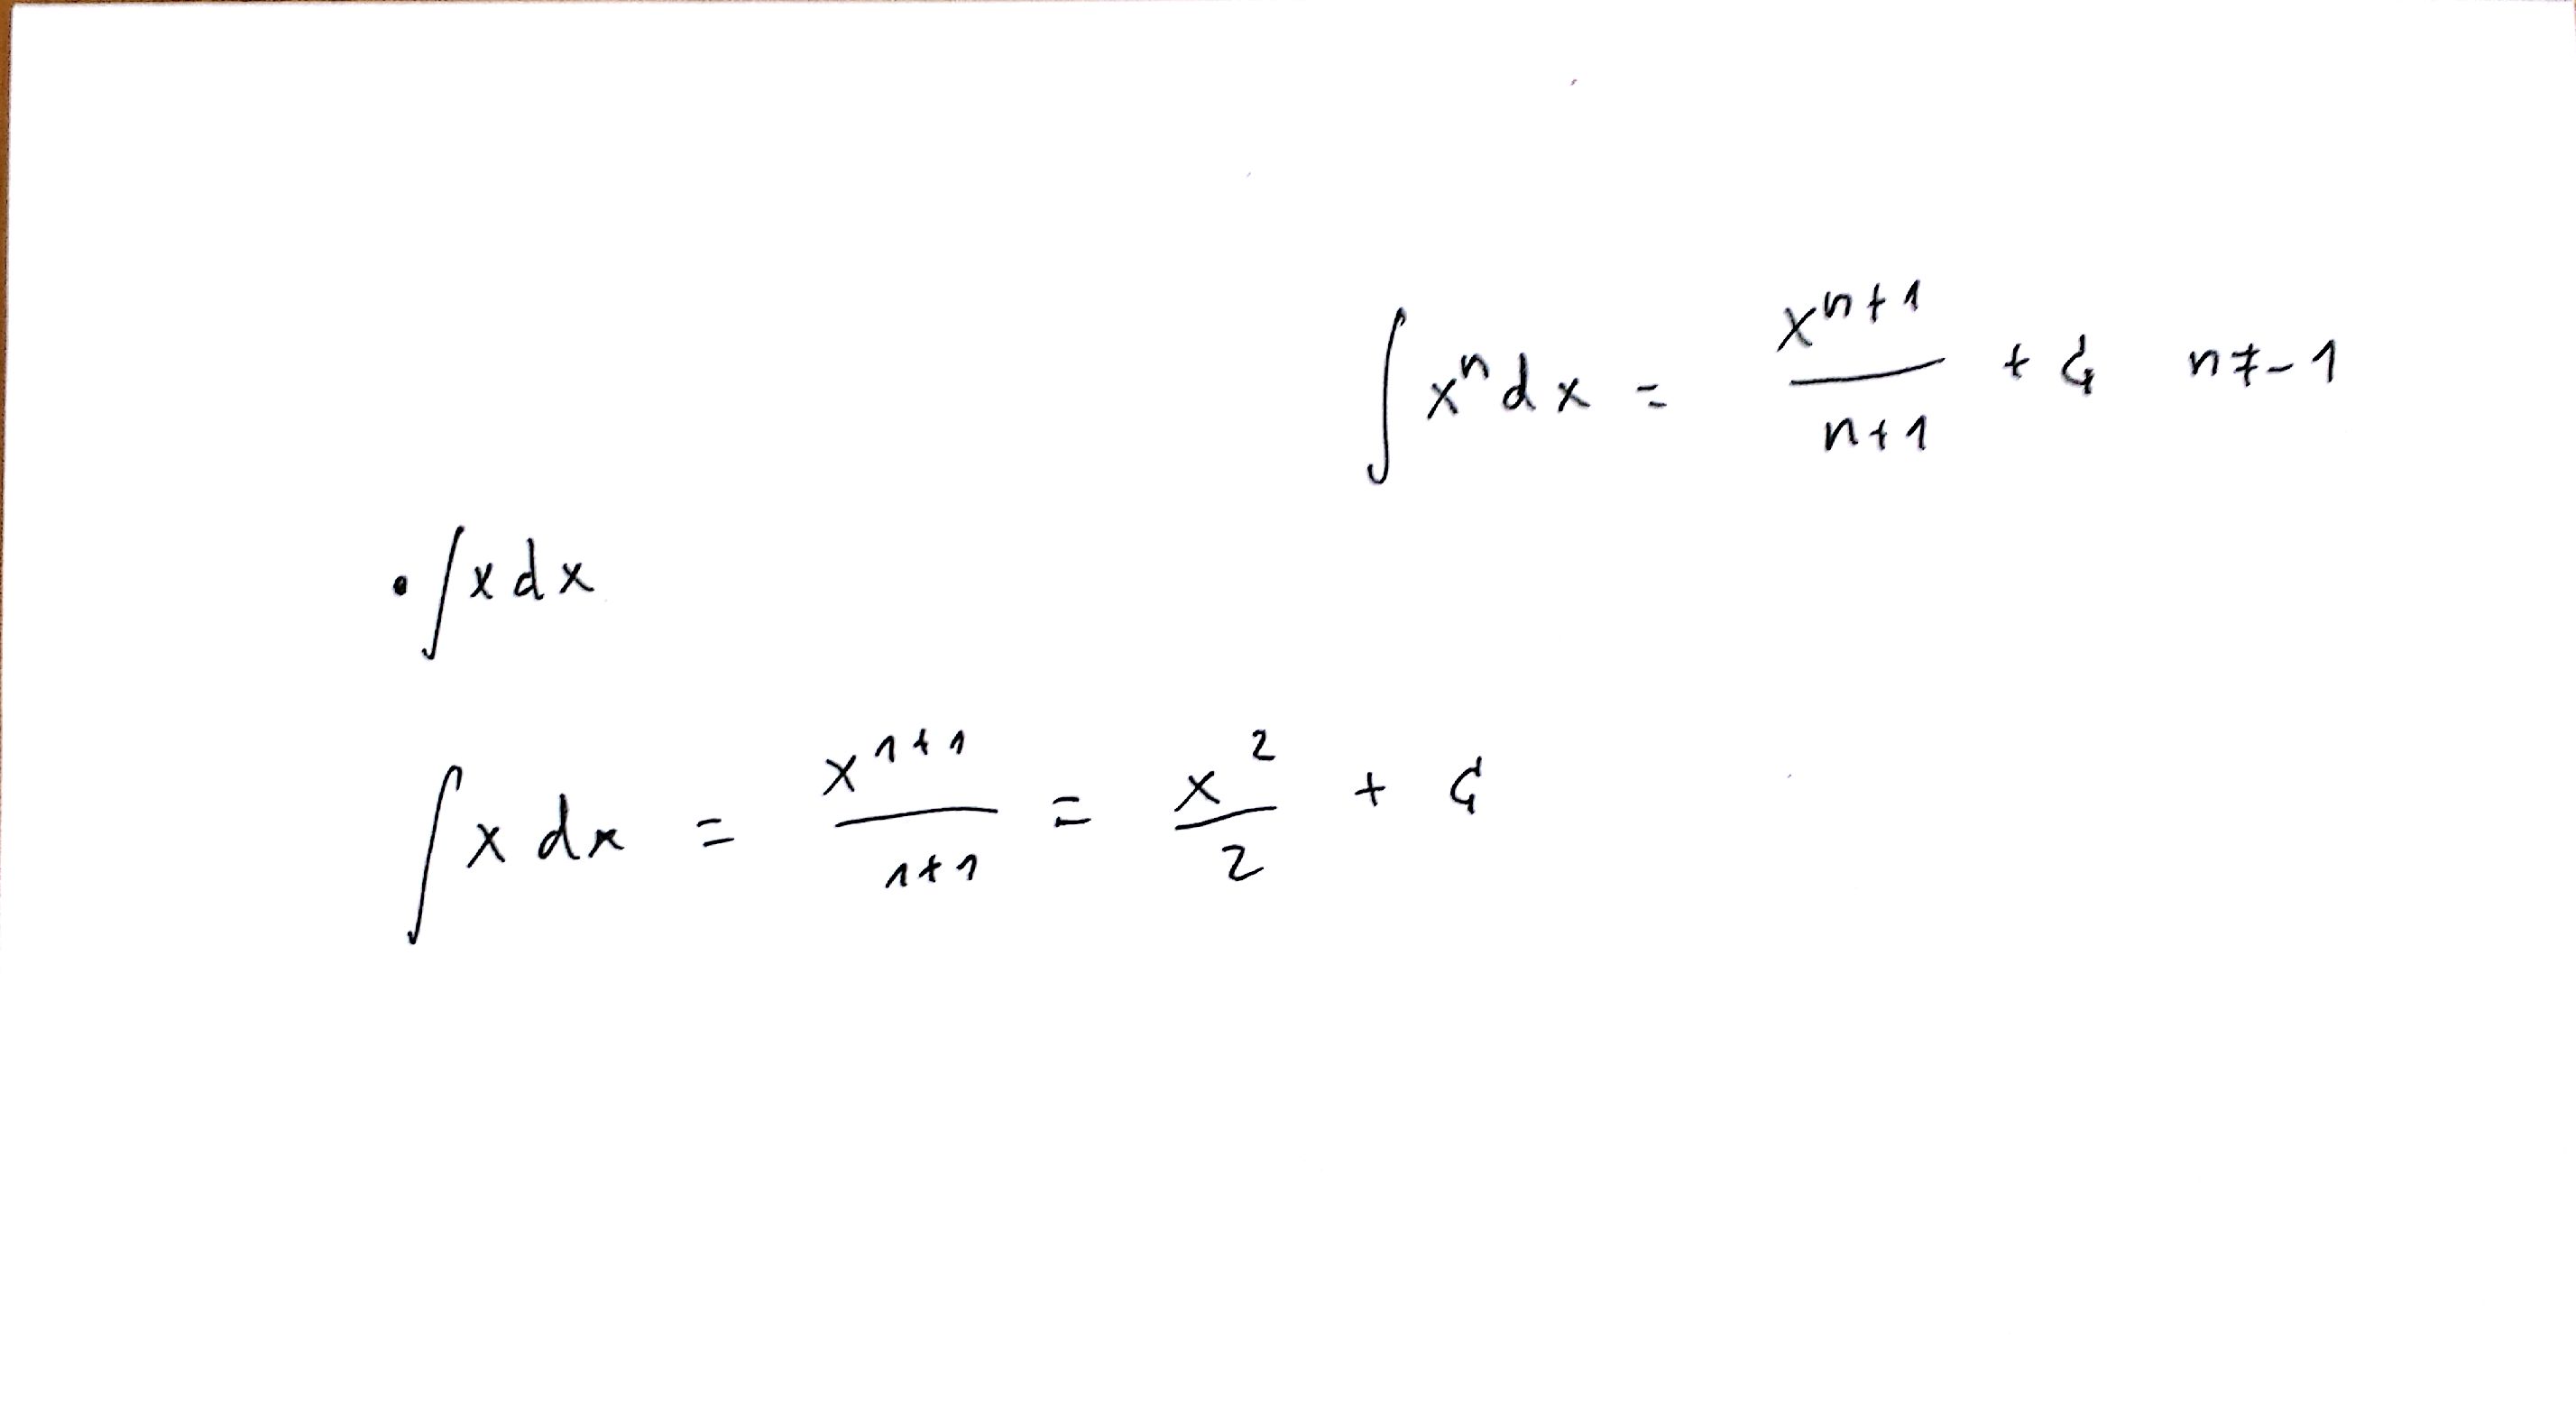 ∫ xⁿ dx = xⁿ⁺¹ / n+1 + C n ≠ -1
• ∫ x dx
∫ x dx = x¹⁺¹ / 1+1 = x² / 2 + C